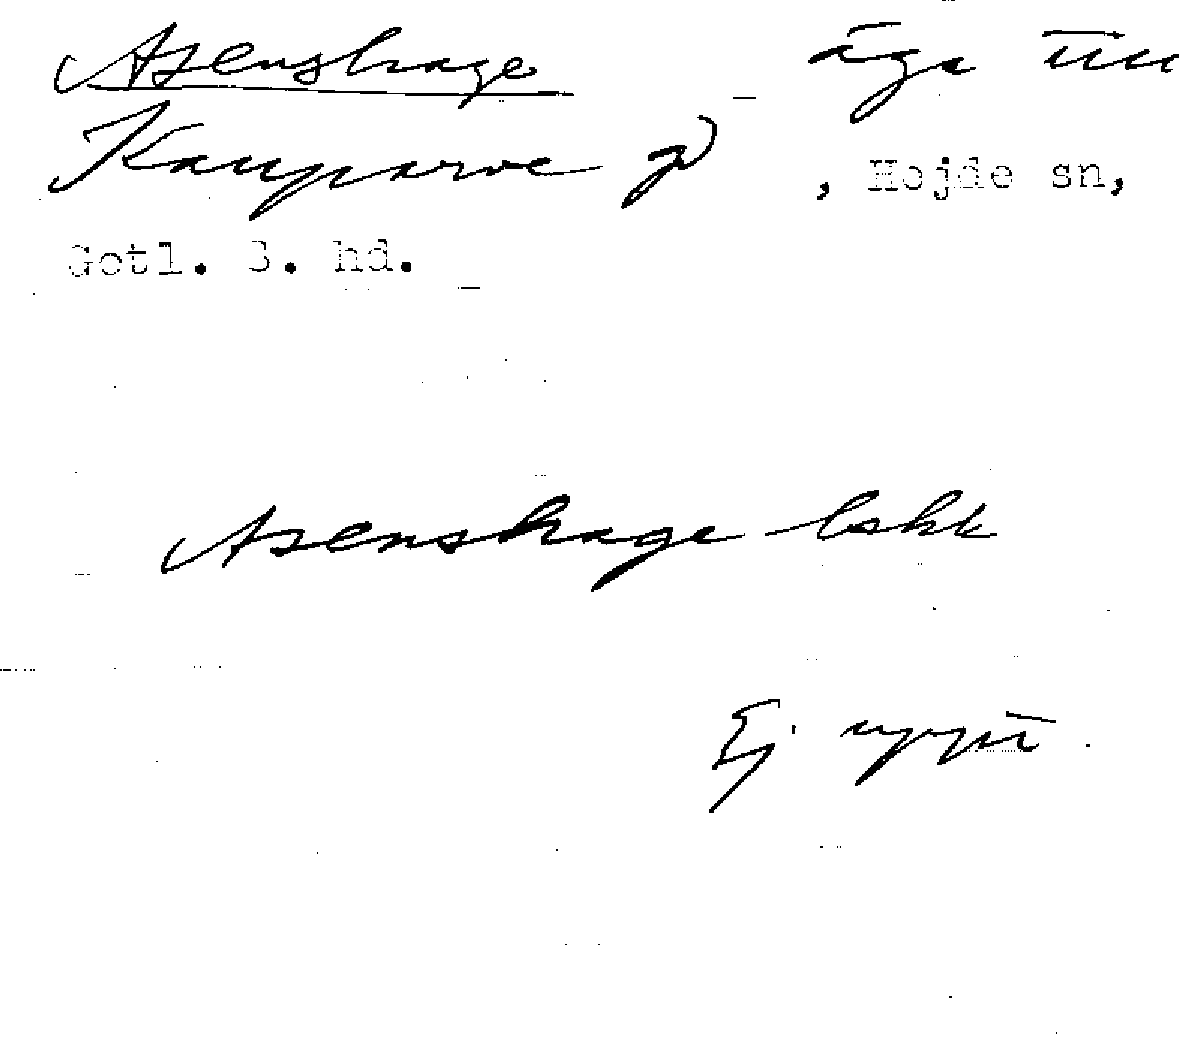 Asenshage äga till
Kauparve gd, Hejde sn,
Gotl. S. hd.
Asenshage lskk
Ej uppt.